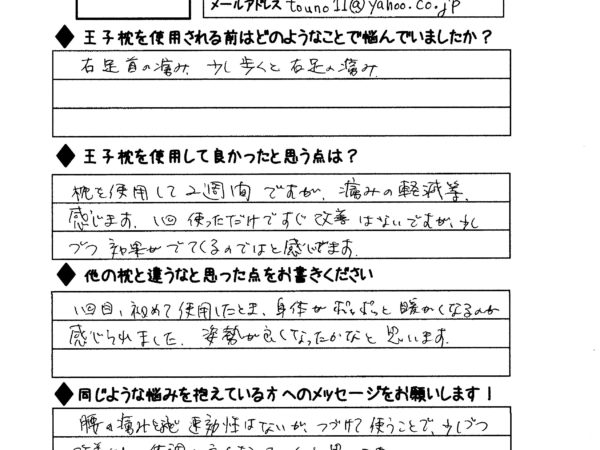 メールアドレス touno11@yahoo.co.jp
◆王子枕を使用される前はどのようなことで悩んでいましたか？
右足首の痛み 少し歩くと右足の痛み
◆王子枕を使用して良かったと思う点は？
枕を使用して2週間ですが、痛みの軽減等、
感じます。1回使っただけですぐ改善はないですが、少し
づつ効果がでてくるのではと感じます。
◆他の枕と違うなと思った点をお書きください
1回目、初めて使用したとき、身体がポッポッと暖かくなるのが
感じられました。姿勢が良くなったかなと思います。
◆同じような悩みを抱えている方へのメッセージをお願いします！
腰の痛み 即効性はないが、つづけて使うことで、少しづつ